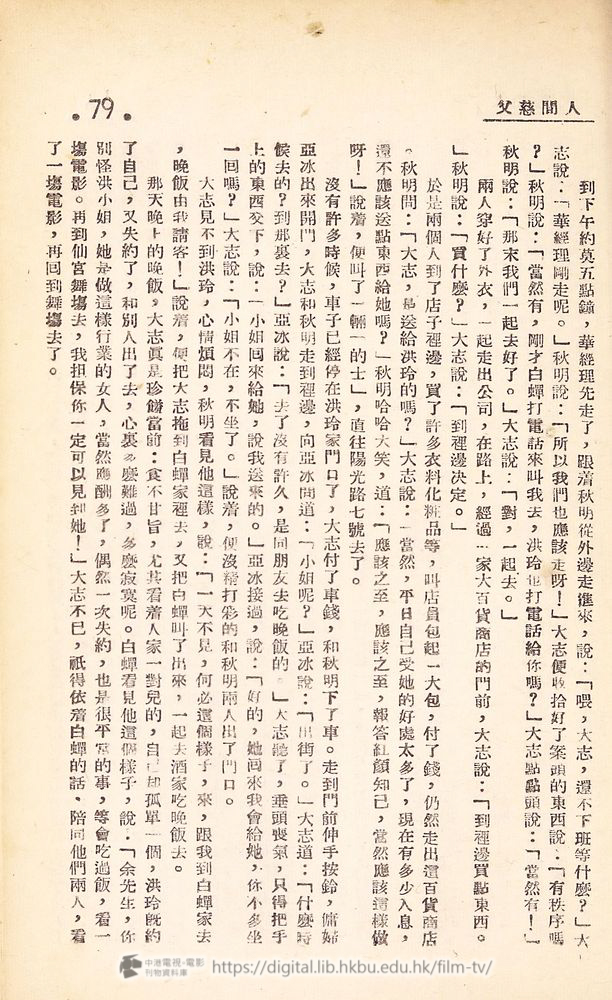 人間慈父
.79.
到下午約莫五點鐘，華經理先走了，跟着秋明從外邊走進來，說：「喂，大志，還不下班等什麼？」大
志說：「華經理剛走呢。」秋明說：「所以我們也應該走呀！」大志便收拾好了案頭的東西說：「有秩序嗎
？」秋明說：「當然有，剛才白蟬打電話來叫我去，洪玲也打電話給你嗎？」大志點點頭說：「當然有！」
秋明說：「那末我們一起去好了。」大志說：「對，一起去。」
兩人穿好了外衣，一起走出公司，在路上，經過一家大百貨商店的門前，大志說：「到裡邊買點東西。
」秋明說：「買什麼？」大志說：「到裡邊決定。」
於是兩個人到了店子裡邊，買了許多衣料化粧品等，叫店員包起一大包，付了錢，仍然走出這百貨商店
。秋明問：「大志，是送給洪玲的嗎？」大志說：「當然，平日自己受她的好處太多了，現在有多少入息，
還不應該送點東西給她嗎？」秋明哈哈大笑，道：「應該之至，應該之至，報答紅顏知己，當然應該這樣做
呀！」說着，便叫了一輛「的士」，直往陽光路七號去了。
沒有許多時候，車子已經停在洪玲家門口了，大志付了車錢，和秋明下了車。走到門前伸手按鈴，傭婦
亞冰出來開門，大志和秋明走到裡邊，向亞冰問道：「小姐呢？」亞冰說：「出街了。」大志道：「什麼時
候去的？到那裏去？」亞冰說：「去了沒有許久，是同朋友去吃晚飯的。」大志聽了，垂頭喪氣，只得把手
上的東西交下，說：「小姐回來給她，說我送來的。」亞冰接過，說：「好的，她回來我會給她，你不多坐
一回嗎？」大志說：「小姐不在，不坐了。」說着，便沒精打彩的和秋明兩人出了門口。
大志見不到洪玲，心情煩悶，秋明看見他這樣，說：「一天不見，何必這個樣子，來，跟我到白蟬家去
，晚飯由我請客！」說着，便把大志拖到白蟬家裡去，又把白蟬叫了出來，一起去酒家吃晚飯去。
那天晚上的晚飯，大志眞是珍饈當前：食不甘旨，尤其看着人家一對兒的，自己却孤單一個，洪玲旣約
了自己，又失約了，和別人出了去，心裏多麼難過，多麼寂寞呢。白蟬看見他這個樣子，說：「余先生，你
別怪洪小姐，她是做這樣行業的女人，當然應酬多了，偶然一次失約，也是很平常的事，等會吃過飯，看一
塲電影。再到仙宮舞塲去，我担保你一定可以見到她！」大志不已，祇得依着白蟬的話、陪同他們兩人，看
了一塲電影，再回到舞塲去了。
中港電視·電影
刊物資料庫
https://digital.lib.hkbu.edu.hk/film-tv/